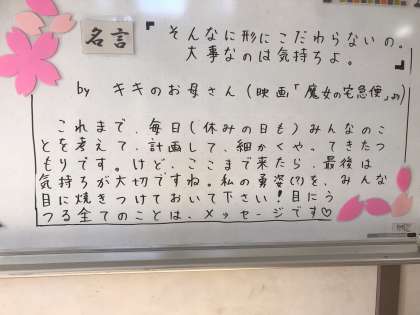 名言
『そんなに形にこだわらないの。
大事なのは気持ちよ。
by キキのお母さん(映画「魔女の宅急便」より)
これまで、毎日(休みの日も)みんなのこ
とを考えて、計画して、細かくやってきたつ
もりです。けど、ここまで来たら、最後は
気持ちが大切ですね。私の勇姿(?)を、みんな
目に焼きつけておいて下さい!目にう
つる全てのことは、メッセージです♡